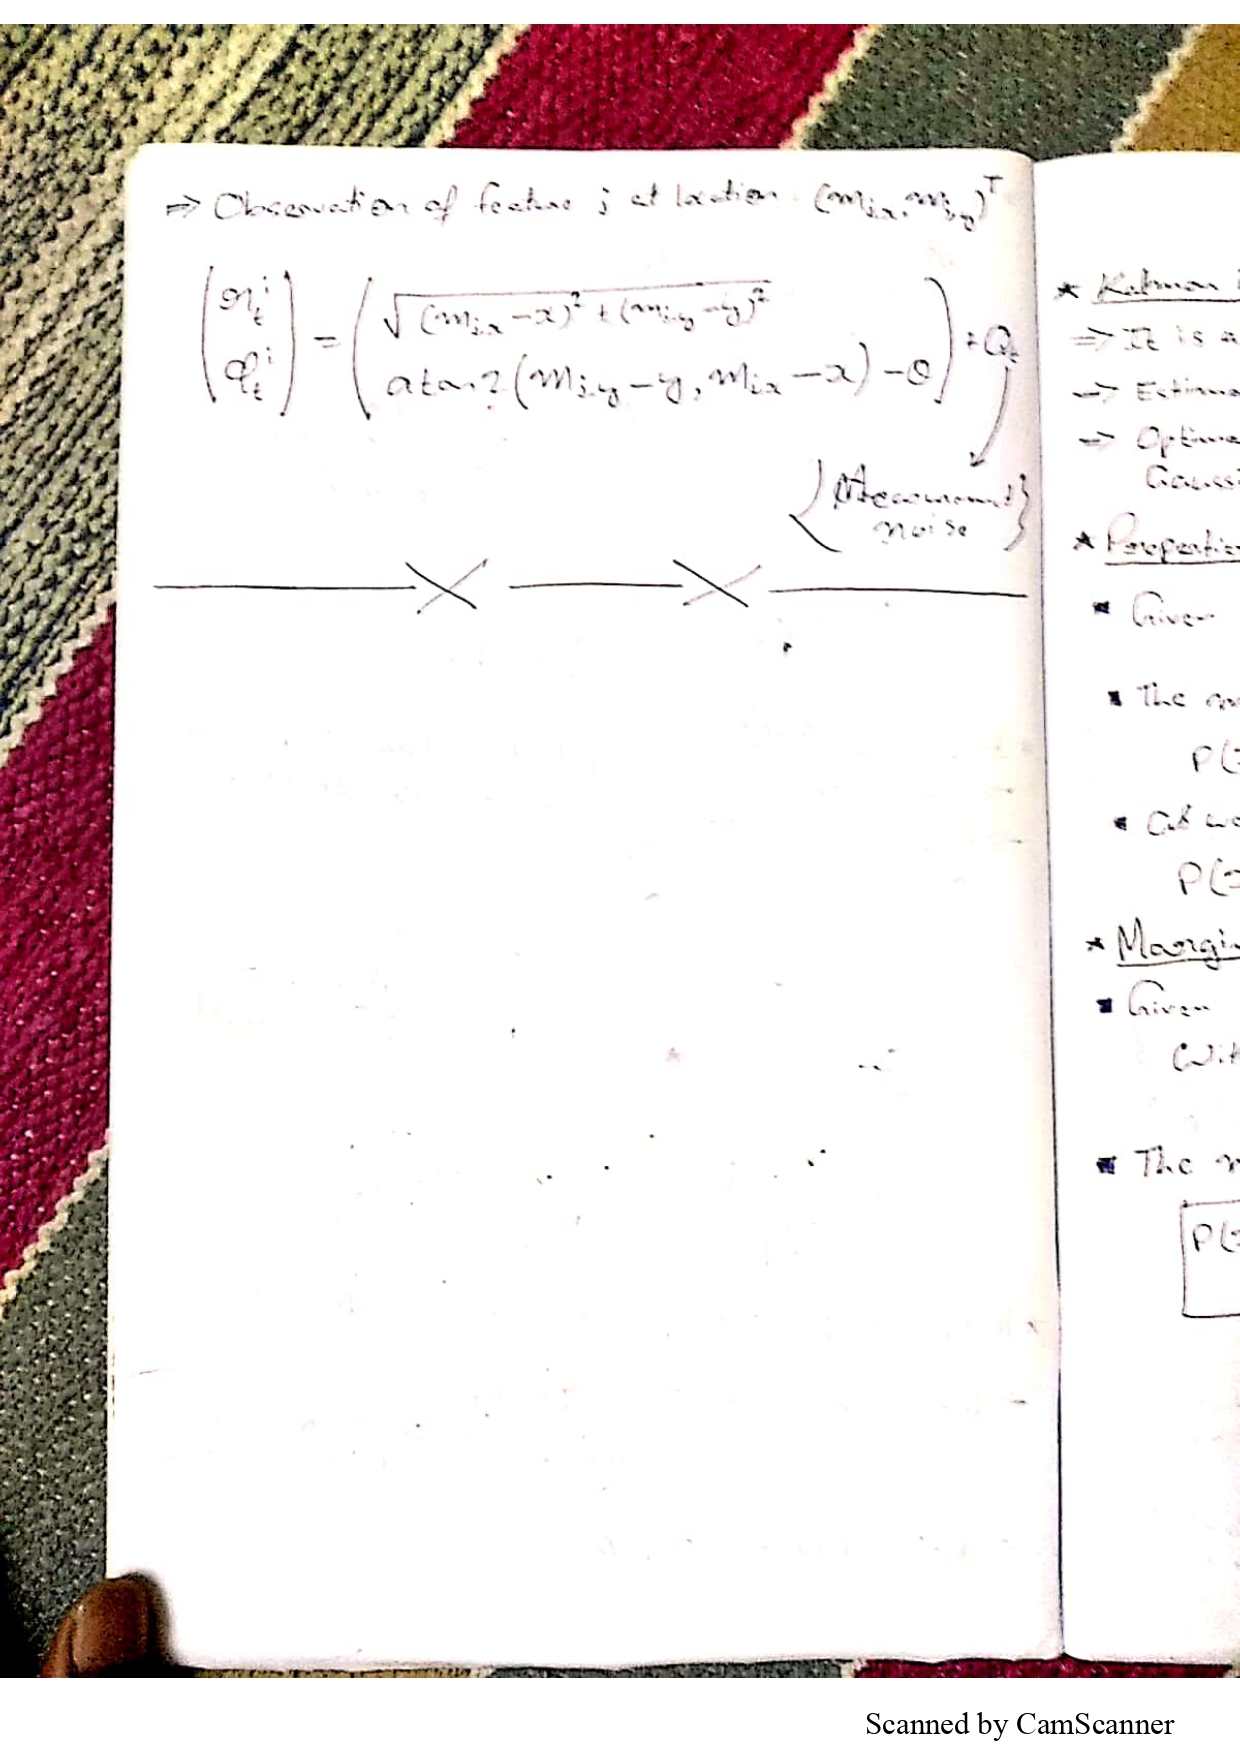 ⇒ Observation of feature j at location (m_{j,x}, m_{j,y})^T
(r_t^i φ_t^i) = (√((m_{j,x} - x)² + (m_{j,y} - y)²) atan2(m_{j,y} - y, m_{j,x} - x) - θ) + Q_t
{Measurement
noise}
* Kalman
⇒ It is a
→ Estima
⇒ Optima
Gaussi
* Propertie
Given
The m
P(
P(
* Margi
Given
With
The m
P(
Scanned by CamScanner